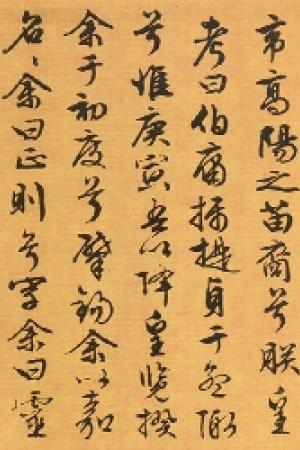 帝高陽之苗裔兮朕皇
考曰伯庸攝提貞于孟陬
兮惟庚寅吾以降皇覽揆
余于初度兮肇錫余以嘉
名〻余曰正則兮字余曰靈